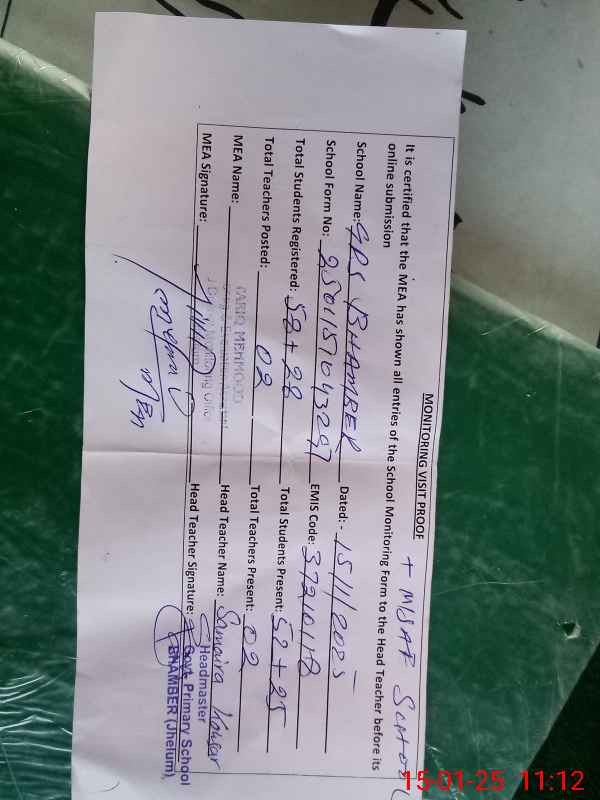 MONITORING VISIT PROOF
+ MSAF School
It is certified that the MEA has shown all entries of the School Monitoring Form to the Head Teacher before its
online submission
School Name: GPS BHAMBER Dated: - 15/1/2025
School Form No: 25011517043297 EMIS Code: 37210118
Total Students Registered: 58 + 28 Total Students Present: 52 + 25
Total Teachers Posted: 02 Total Teachers Present: 02
MEA Name: TARIQ MEHMOOD Head Teacher Name: Samaira Kousar
MEA Signature: Head Teacher Signature:
Headmaster
Govt. Primary School
BHAMBER (Jhelum)
15-01-25 11:12